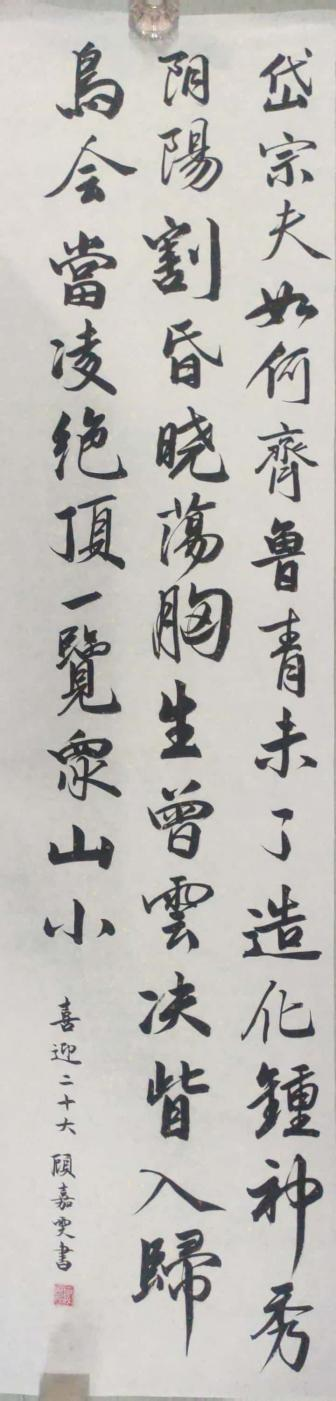 岱宗夫如何齊魯青未了造化鍾神秀
阴陽割昏晓蕩胸生曾雲决眥入歸
鳥会當凌绝顶一覽眾山小
喜迎二十大 顾嘉雯書